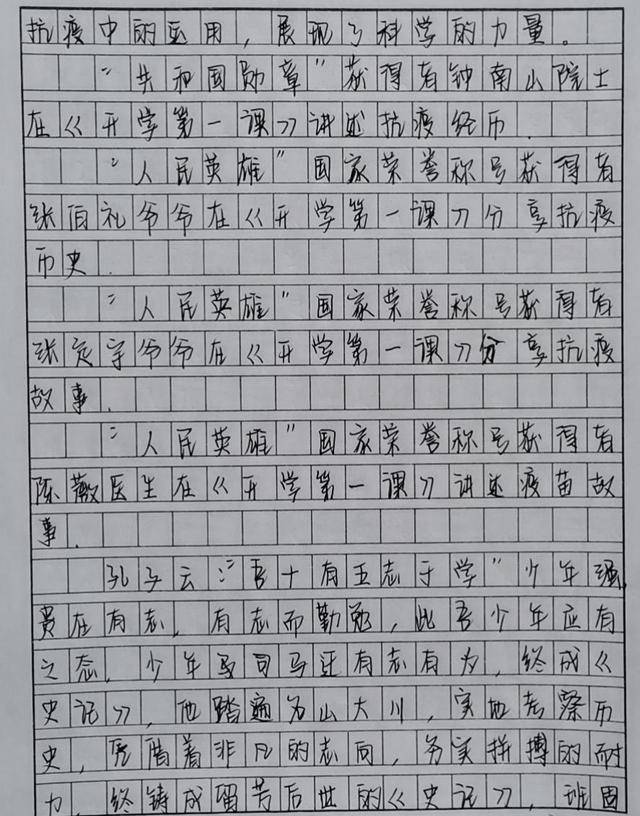 抗疫中的运用，展现了科学的力量。
“共和国勋章”获得者钟南山院士
在《开学第一课》讲述抗疫经历.
“人民英雄”国家荣誉称号获得者
张伯礼爷爷在《开学第一课》分享抗疫
历史.
“人民英雄”国家荣誉称号获得者
张定宇爷爷在《开学第一课》分享抗疫
故事.
“人民英雄”国家荣誉称号获得者
陈薇医生在《开学第一课》讲述疫苗故
事.
孔子云：“吾十有五志于学”少年强，
贵在有志，有志而勤勉，此吾少年应有
之态，少年司马迁有志有为，终成《
史记》，他踏遍名山大川，实地考察历
史，凭借着非凡的志向，务实拼搏的耐
力，终铸成留芳后世的《史记》，班固